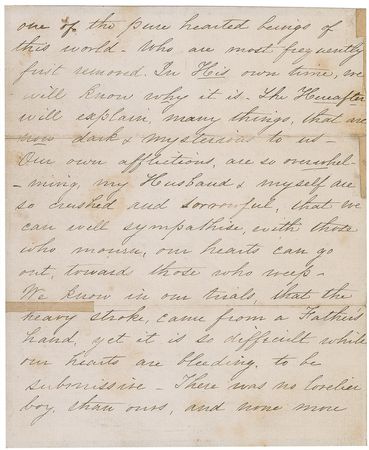 one of the pure hearted beings of
this world - Who are most frequently
first removed. In His own time, we
will know why it is - The Hereafter
will explain, many things, that are
now dark & mysterious to us -
Our own afflictions, are so overwhel-
-ming, my Husband & myself are
so crushed and sorrowful, that we
can well sympathise, with those
who mourn, our hearts can go
out, towards those who weep -
We know in our trials, that the
heavy stroke, came from a Father's
hand, yet it is so difficult while
our hearts are bleeding, to be
submissive - There was no lovelier
boy, than ours, and none more